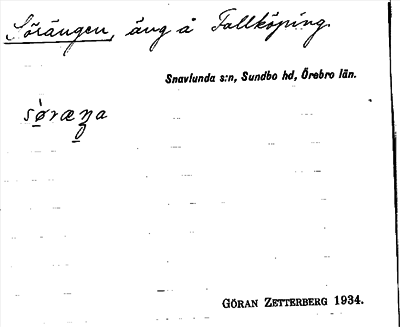 Sörängen, äng å Fallköping.
Snavlunda s:n, Sundbo hd, Örebro län.
GÖRAN ZETTERBERG 1934.